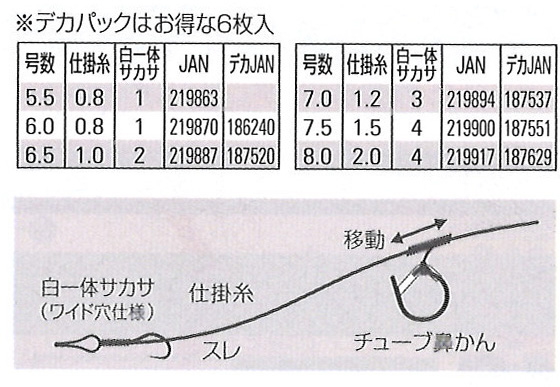 ※デカパックはお得な6枚入
号数 仕掛糸 白一体サカサ JAN デカJAN
5.5 0.8 1 219863
6.0 0.8 1 219870 186240
6.5 1.0 2 219887 187520
号数 仕掛糸 白一体サカサ JAN デカJAN
7.0 1.2 3 219894 187537
7.5 1.5 4 219900 187551
8.0 2.0 4 219917 187629
移動
白一体サカサ
（ワイド穴仕様）
仕掛糸
スレ
チューブ鼻かん